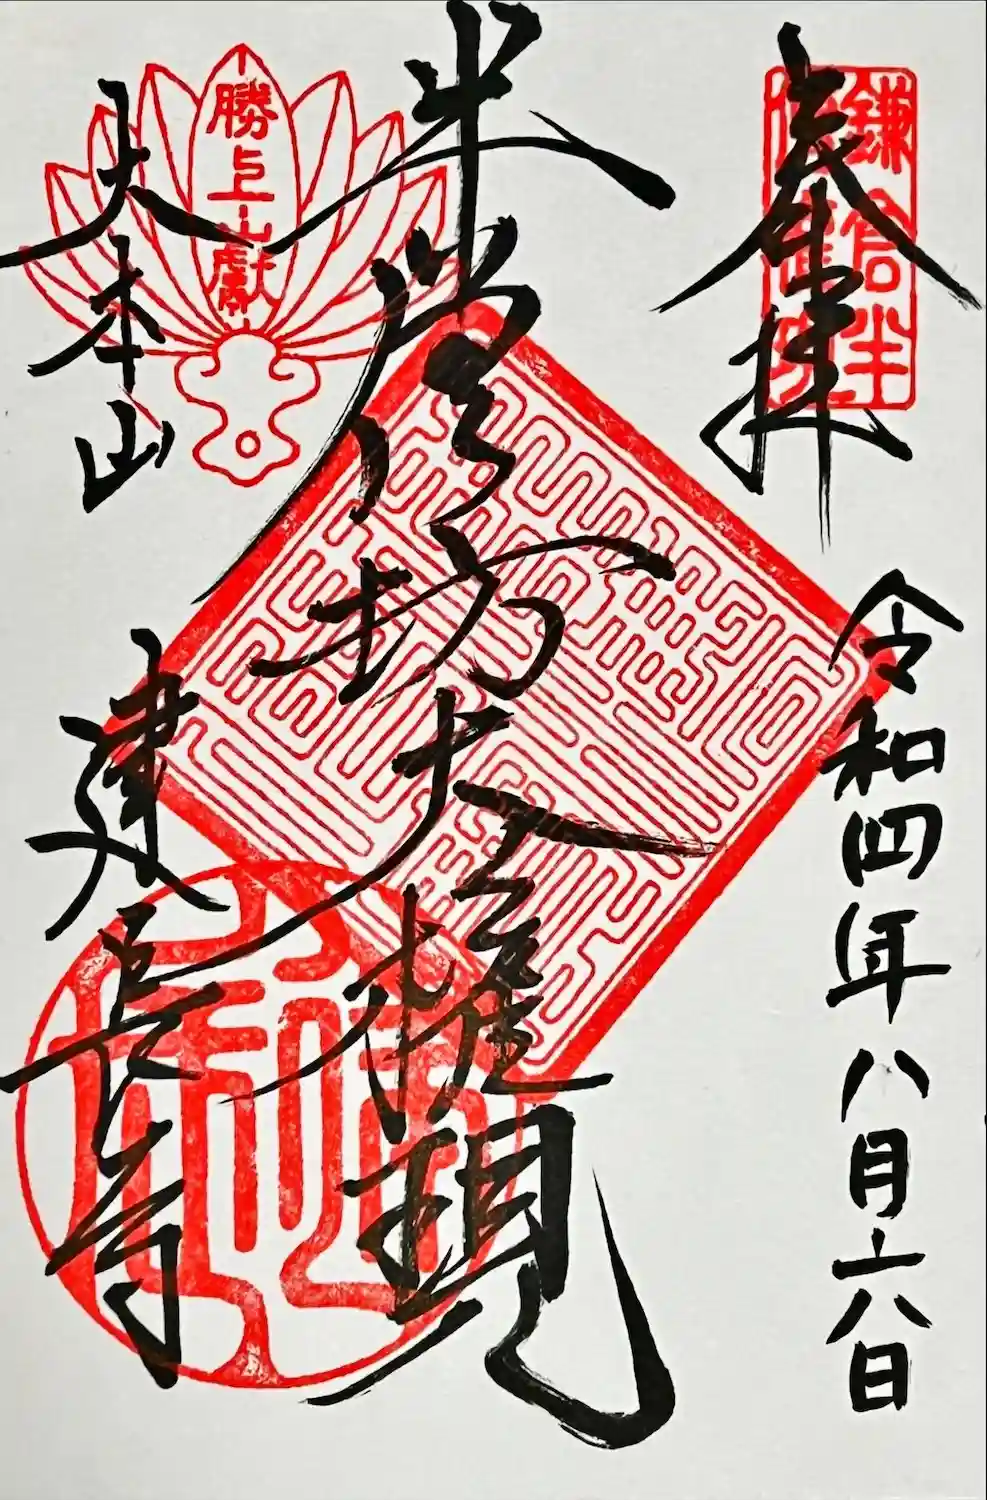 奉拝
鎌倉半
令和四年八月六日
半僧坊大権現
勝上巘
大本山
建長寺